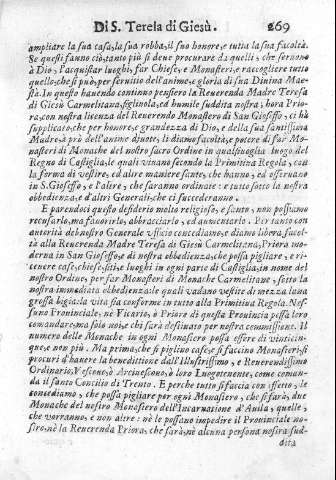 Di S. Teresa di Giesù. 269
ampliare la sua casa, la sua robba, il suo honore, e tutta la sua facoltà.
Se questi fanno ciò, tanto più si deue procurare da quelli, che seruono
à Dio, l'acquistar luoghi, far Chiese, e Monasteri, e raccogliere tutto
quello, che si può, per seruitio dell'anime, e gloria di sua Diuina Mae-
stà. In questo hauendo continuo pensiero la Reuerenda Madre Teresa
di Giesù Carmelitana, figliuola, ed humile suddita nostra; hora Prio-
ra, con nostra licenza del Reuerendo Monastero di San Gioseffo, ci hà
supplicato, che per honore, e grandezza di Dio, e della sua santissima
Madre, à prò dell'anime diuote, li diamo facoltà, e potere di far Mo-
nasteri di Monache del nostro sacro Ordine in qualsiuoglia luogo del
Regno di Castiglia, le quali viuano secondo la Primitiua Regola, con
la forma di vestire, ed altre maniere sante, che hanno, ed osseruano
in S. Gioseffo, e l'altre, che saranno ordinate: e tutto sotto la nostra
obbedienza, e d'altri Generali, che ci succederanno.
E parendoci questo desiderio molto religioso, e santo, non possiamo
recusarlo, ma fauorirlo, abbracciarlo, ed aumentarlo. Per tanto con
autorità del nostro Generale vfficio concediamo, e diamo libera facol-
tà alla Reuerenda Madre Teresa di Giesù Carmelitana, Priora mo-
derna in San Gioseffo, e di nostra obbedienza, che possa pigliare, e ri-
ceuere case, chiese, siti, e luoghi in ogni parte di Castiglia, in nome del
nostro Ordine, per far Monasteri di Monache Carmelitane, sotto la
nostra immediata obbedienza: le quali vadano vestite di mezza lana
grossa bigia: la vita sia conforme in tutto alla Primitiua Regola. Nes-
suno Prouinciale, nè Vicario, ò Priora di questa Prouincia possa loro
comandare; ma solo noi, e chi sarà deputato per nostra commissione. Il
numero delle Monache in ogni Monastero possa essere di vinticin-
que, e non più. Ma prima, che si piglino case, e si faccino Monasteri, si
procuri d'hauere la benedittione dall'Illustrissimo, e Reuerendissimo
Ordinario, Vescouo, ò Arciuescouo, ò loro Luogotenente, come coman-
da il santo Concilio di Trento. E perche tutto si faccia con effetto, le
concediamo, che possa pigliare per ogni Monastero, che si farà, due
Monache del nostro Monastero dell'Incarnatione d'Auila, quelle,
che vorranno, e non altre: nè le possano impedire il Prouinciale no-
stro, nè la Reuerenda Priora, che sarà, nè alcuna persona nostra sud-
dita